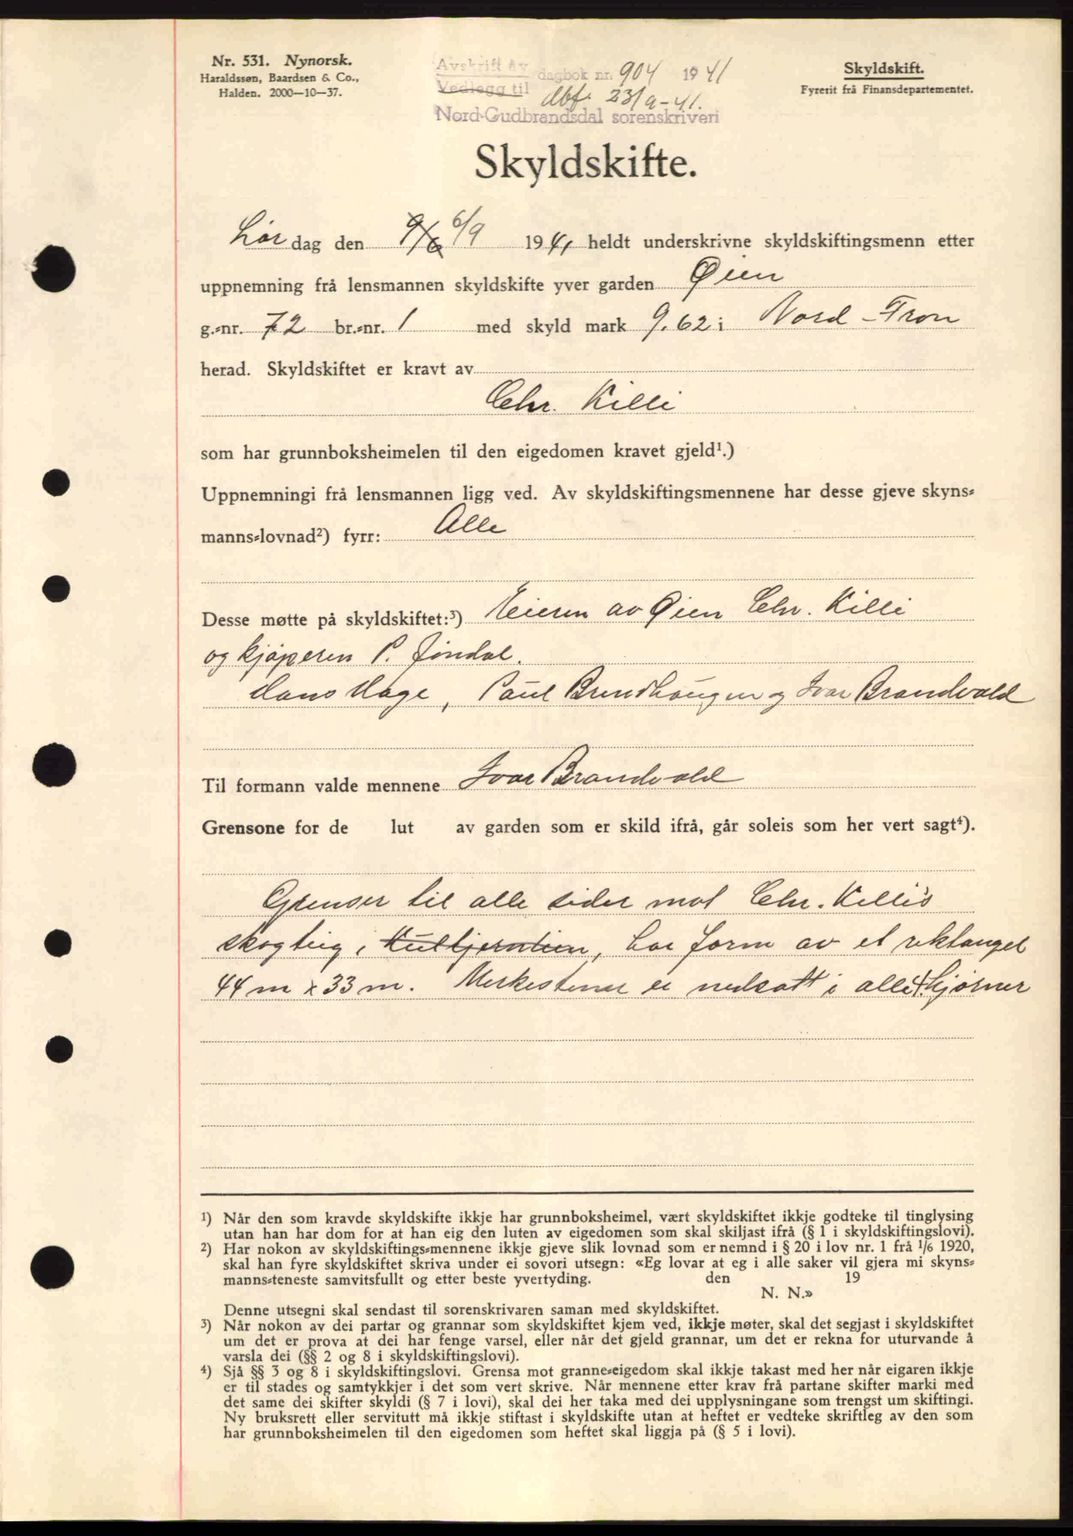 Nr. 531. Nynorsk.
Haraldssøn, Baardsen & Co.,
Halden. 2000—10—37.
Avskrift av
Vedlegg til
dagbok nr. 904 1941
dbf. 23/9-41.
Nord-Gudbrandsdal sorenskriveri
Skyldskift.
Fyrerit frå Finansdepartementet.
Skyldskifte.
Lør dag den 9/6 6/9 1941 heldt underskrivne skyldskiftingsmenn etter
uppnemning frå lensmannen skyldskifte yver garden Øien
g.-nr. 72 br.-nr. 1 med skyld mark 9.62 i Nord-Fron
herad. Skyldskiftet er kravt av
Chr. Killi
som har grunnboksheimelen til den eigedomen kravet gjeld¹.)
Uppnemningi frå lensmannen ligg ved. Av skyldskiftingsmennene har desse gjeve skyns-
manns-lovnad²) fyrr: Alle
Desse møtte på skyldskiftet:³) Eieren av Øien Chr. Killi
og kjøperen P. Jøndal.
Hans Hage, Paul Brendhaugen og Ivar Brandvold
Til formann valde mennene Ivar Brandvold
Grensone for de lut av garden som er skild ifrå, går soleis som her vert sagt⁴).
Grenser til alle sider mot Chr. Killi's
skogteig i, har form av et rektangel
44 m x 33 m. Merkestener er nedsatt i alle 4 hjørner
¹) Når den som kravde skyldskifte ikkje har grunnboksheimel, vært skyldskiftet ikkje godteke til tinglysing
utan han har dom for at han eig den luten av eigedomen som skal skiljast ifrå (§ 1 i skyldskiftingslovi).
²) Har nokon av skyldskiftings-mennene ikkje gjeve slik lovnad som er nemnd i § 20 i lov nr. 1 frå 1/6 1920,
skal han fyre skyldskiftet skriva under ei sovori utsegn: «Eg lovar at eg i alle saker vil gjera mi skyns-
manns-teneste samvitsfullt og etter beste yvertyding. den 19
N. N.»
Denne utsegni skal sendast til sorenskrivaren saman med skyldskiftet.
³) Når nokon av dei partar og grannar som skyldskiftet kjem ved, ikkje møter, skal det segjast i skyldskiftet
um det er prova at dei har fenge varsel, eller når det gjeld grannar, um det er rekna for uturvande å
varsla dei (§§ 2 og 8 i skyldskiftingslovi).
⁴) Sjå §§ 3 og 8 i skyldskiftingslovi. Grensa mot granne-eigedom skal ikkje takast med her når eigaren ikkje
er til stades og samtykkjer i det som vert skrive. Når mennene etter krav frå partane skifter marki med
det same dei skifter skyldi (§ 7 i lovi), skal dei her taka med dei upplysningane som trengst um skiftingi.
Ny bruksrett eller servitutt må ikkje stiftast i skyldskifte utan at heftet er vedteke skriftleg av den som
har grunnboksheimelen til den eigedomen som heftet skal liggja på (§ 5 i lovi).